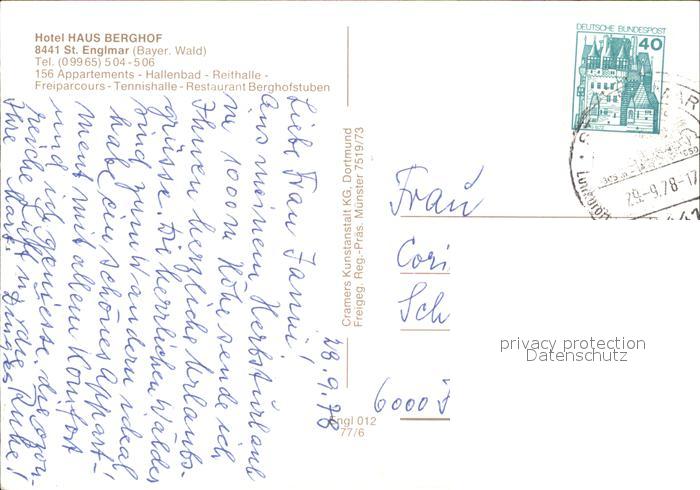 Hotel HAUS BERGHOF
8441 St. Englmar (Bayer. Wald)
Tel. (09965) 504-506
156 Appartements - Hallenbad - Reithalle -
Freiparcours - Tennishalle - Restaurant Berghofstuben
28.9.78
Liebe Frau Janni!
Aus meinem Herbsturlaub
in 1000 m Höhe sende ich
Ihnen herzliche Urlaubs-
grüsse. Die herrlichen Wälder
sind zum Wandern ideal
habe ein schönes Appart-
ment mit allem Komfort
und ich geniesse die ozon-
reiche Luft u. die Ruhe!
Ihre
Cramers Kunstanstalt KG, Dortmund
Freigeg. Reg.-Präs. Münster 7519/73
ngl 012
77/6
DEUTSCHE BUNDESPOST
40
29.-9.78-17
Frau
Cori
Sch
6000
privacy protection
Datenschutz